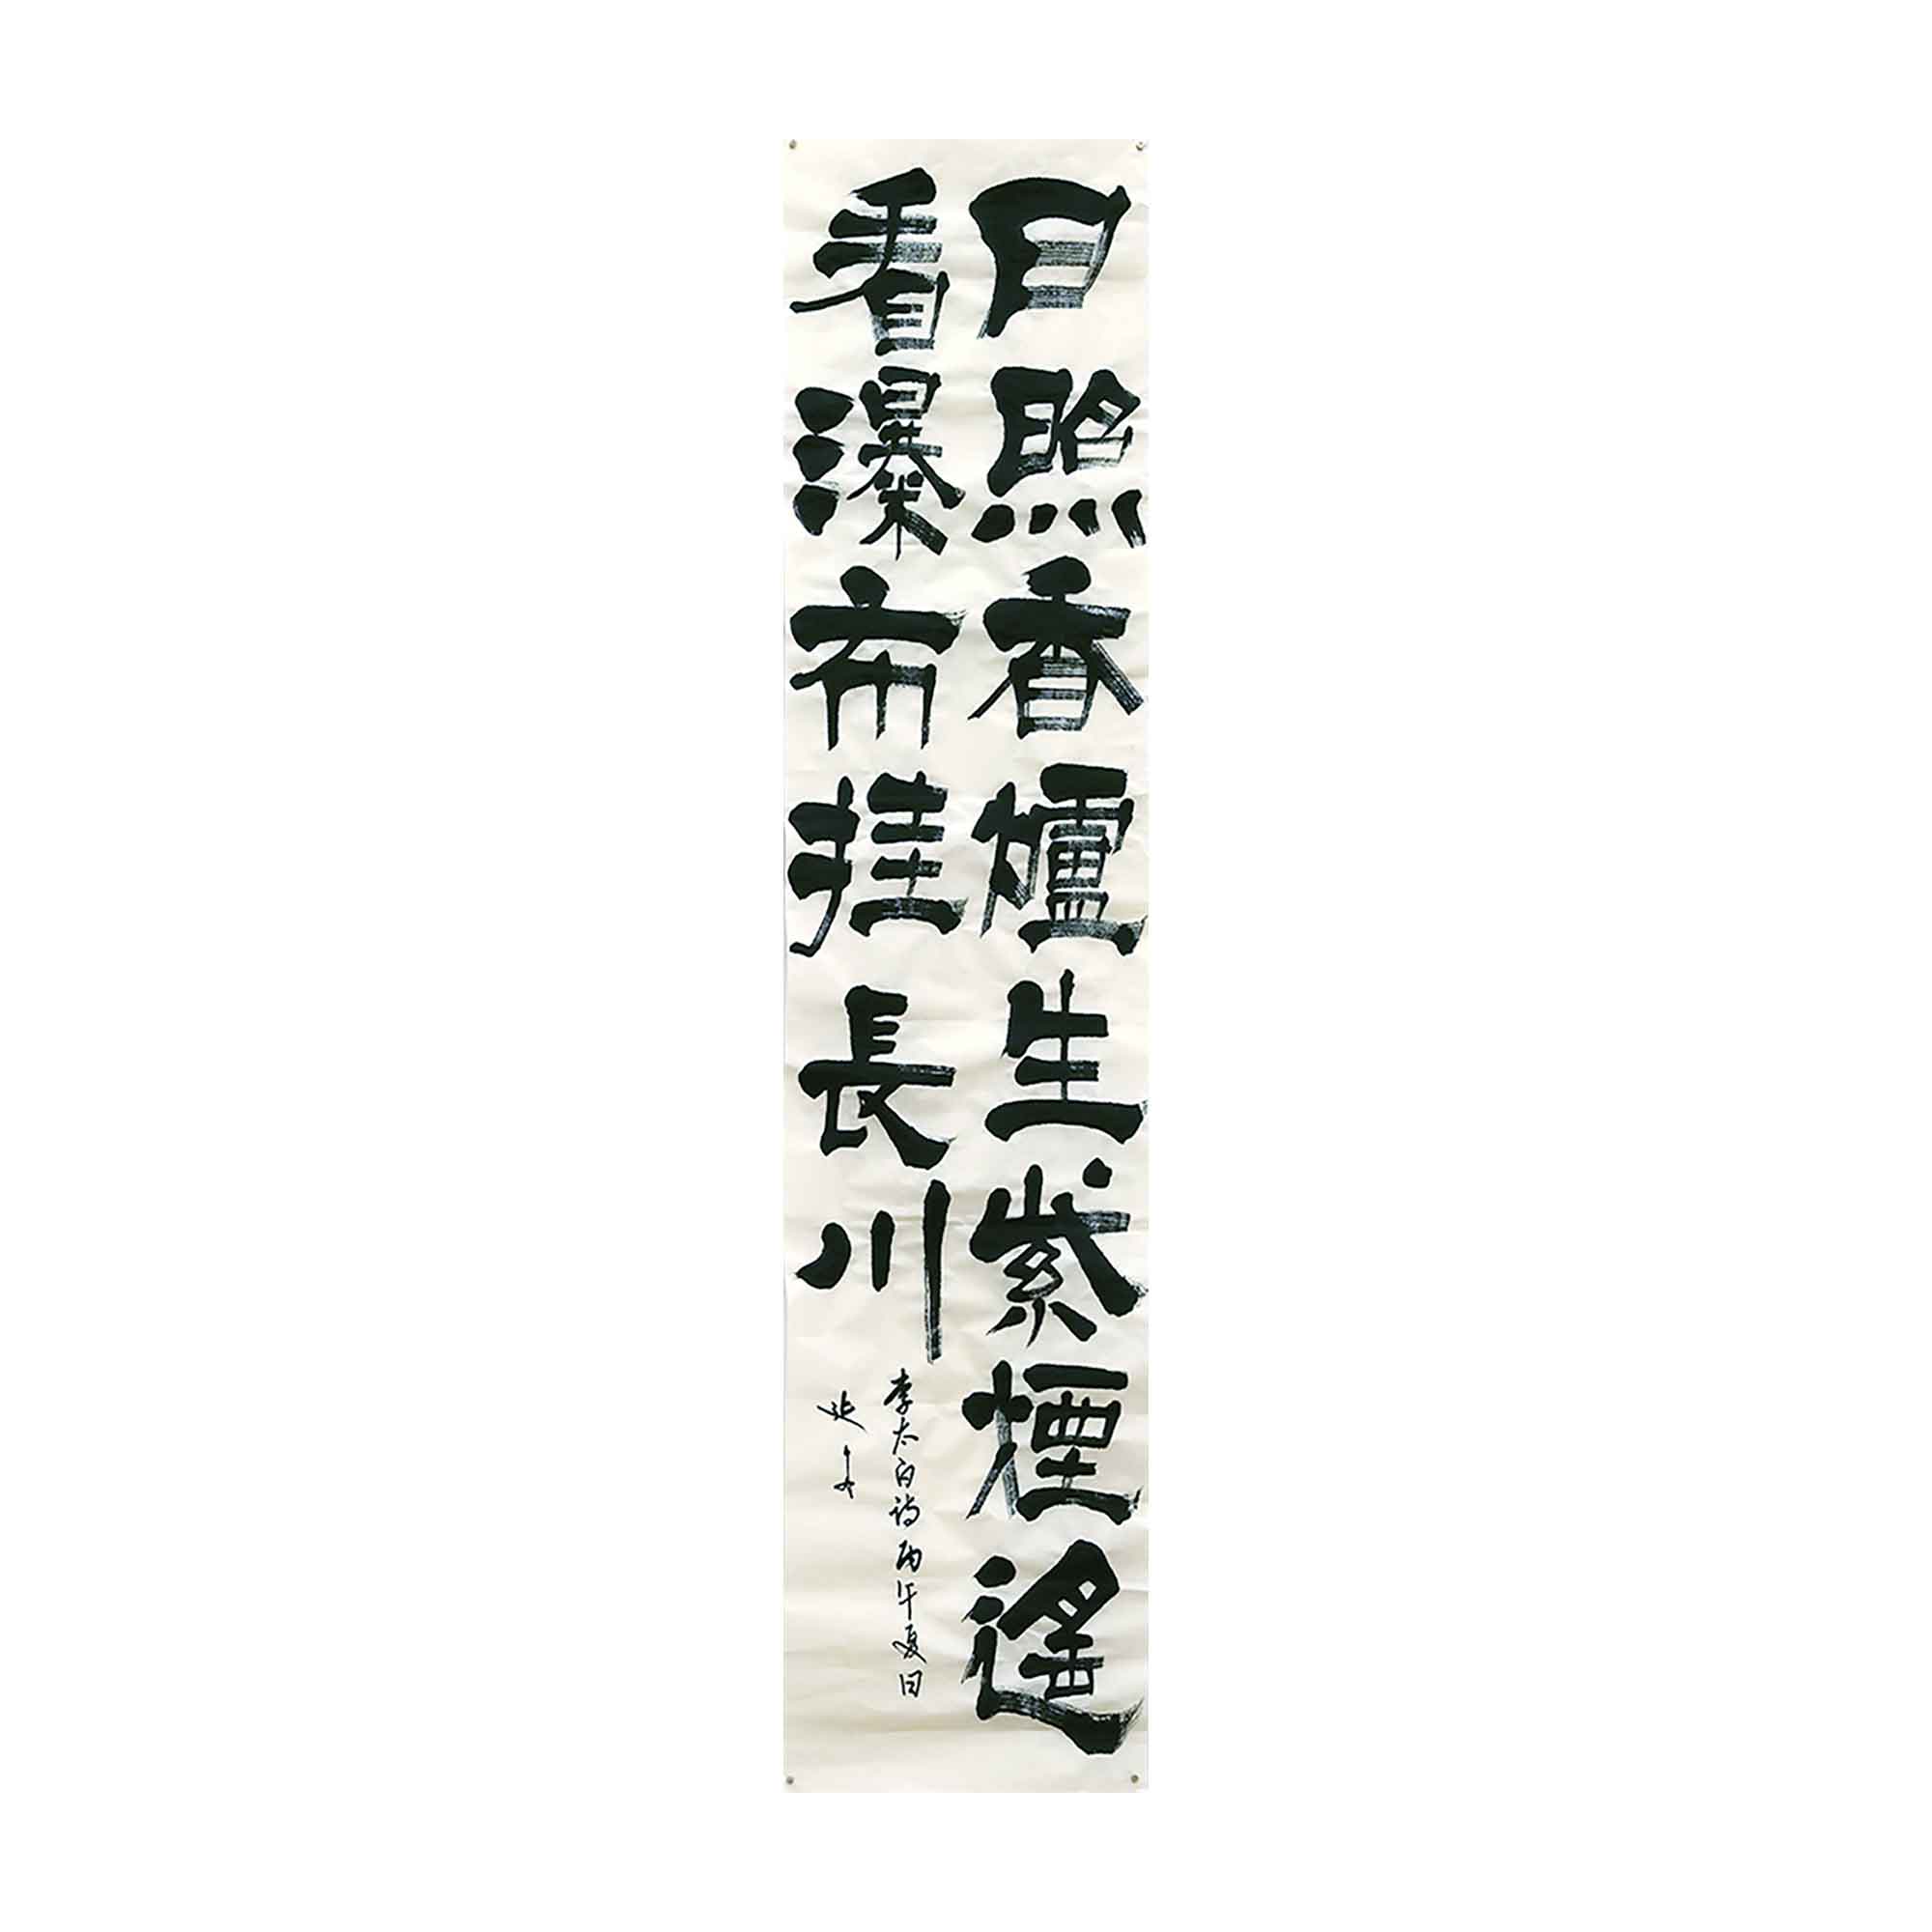 日照香爐生紫煙遙
看瀑布挂長川
李太白詩丙午夏日
延年